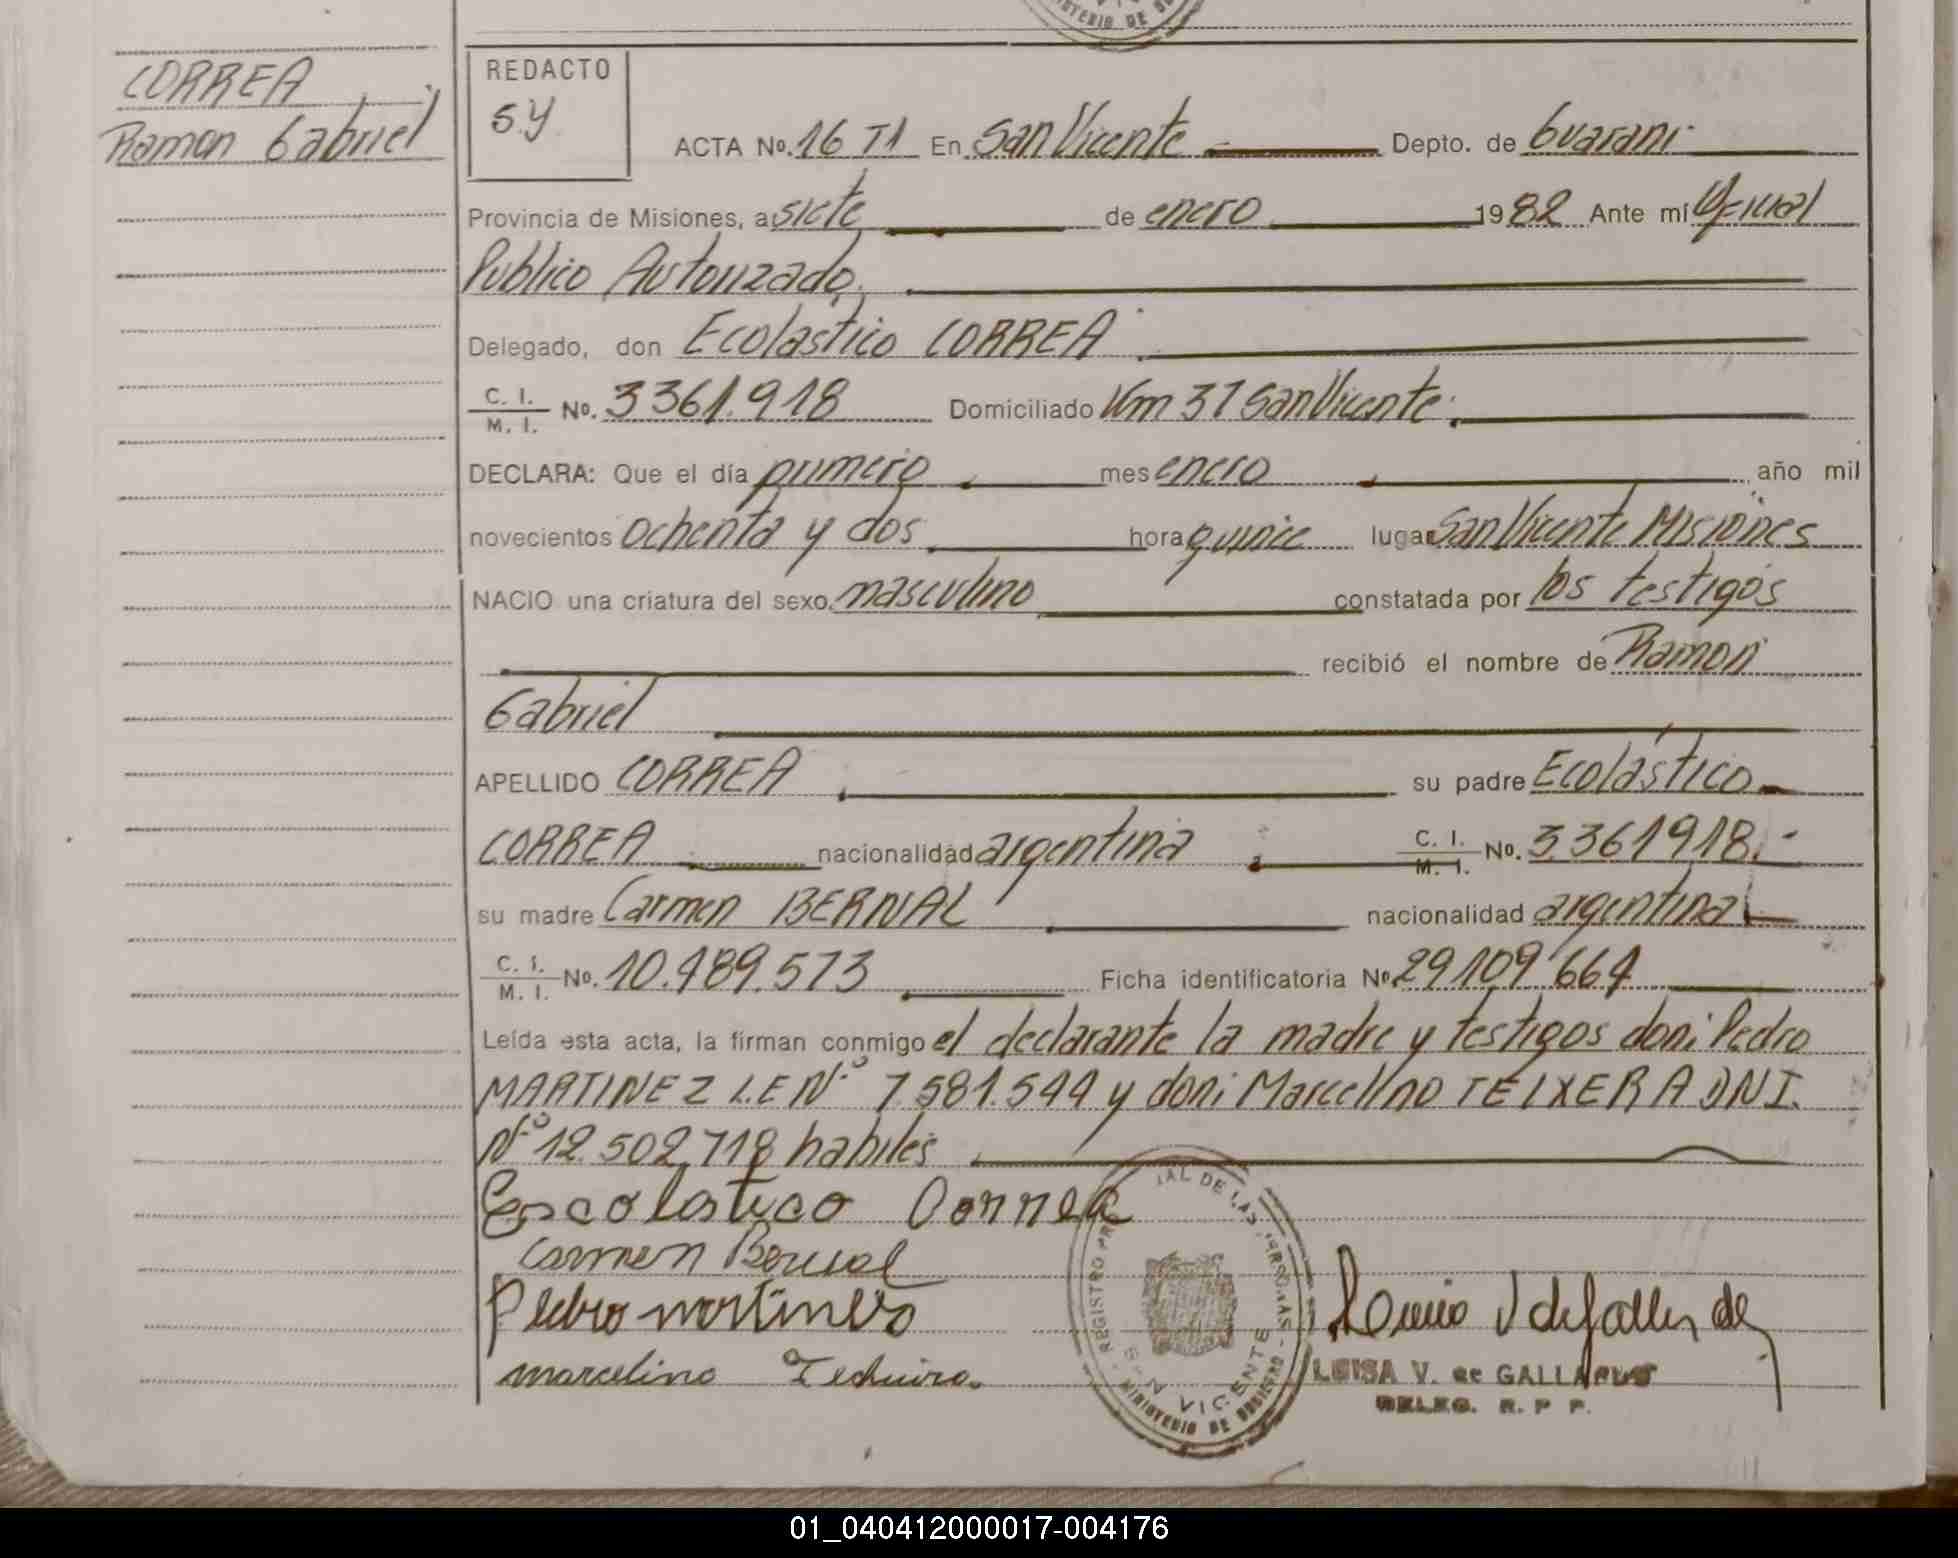 MINISTERIO DE
CORREA
Ramon Gabriel
REDACTO
S.Y
ACTA No. 16 T1 En San Vicente Depto. de Guarani
Provincia de Misiones, a siete de enero 1982 Ante mí Oficial
Publico Autorizado,
Delegado, don Ecolastico CORREA
C. I. M. I. No. 3361.918 Domiciliado Km 37 San Vicente
DECLARA: Que el día primero mes enero año mil
novecientos ochenta y dos hora quince lugar San Vicente Misiones
NACIO una criatura del sexo masculino constatada por los testigos
recibió el nombre de Ramon
Gabriel
APELLIDO CORREA su padre Ecolástico
CORREA nacionalidad argentina C. I. M. I. No. 3.361918.-
su madre Carmen BERNAL nacionalidad argentina
C. I. M. I. No. 10.489.573 Ficha identificatoria No. 29109664
Leída esta acta, la firman conmigo el declarante la madre y testigos don: Pedro
MARTINEZ L.E Nº 7.581.544 y don: Marcelino TEIXERA DNI.
Nº 12.502.718 habiles
Escolastico Correa
Carmen Bernal
Pedro martinez
marcelino
REGISTRO PROVINCIAL DE LAS PERSONAS - MINISTERIO DE GOBIERNO -
SAN VICENTE
LUISA V. de GALLARDO
DELEG. R. P P.
01_040412000017-004176